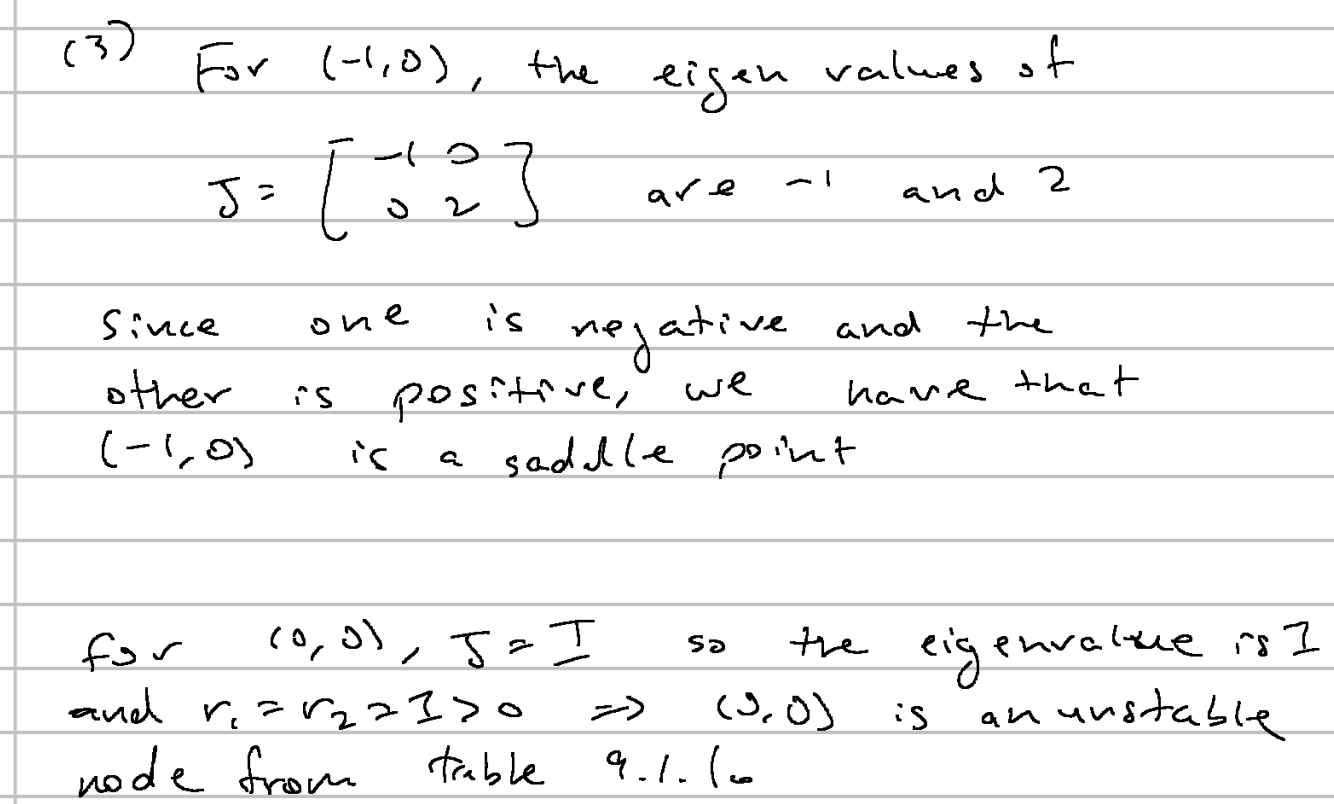 (3) For (-1,0), the eigen values of
J = [ -1 0
0 2 ] are -1 and 2
Since one is negative and the
other is positive, we have that
(-1,0) is a saddle point
for (0,0), J = I so the eigenvalue is 1
and r₁ = r₂ = 1 > 0 => (0,0) is an unstable
node from table 9.1.